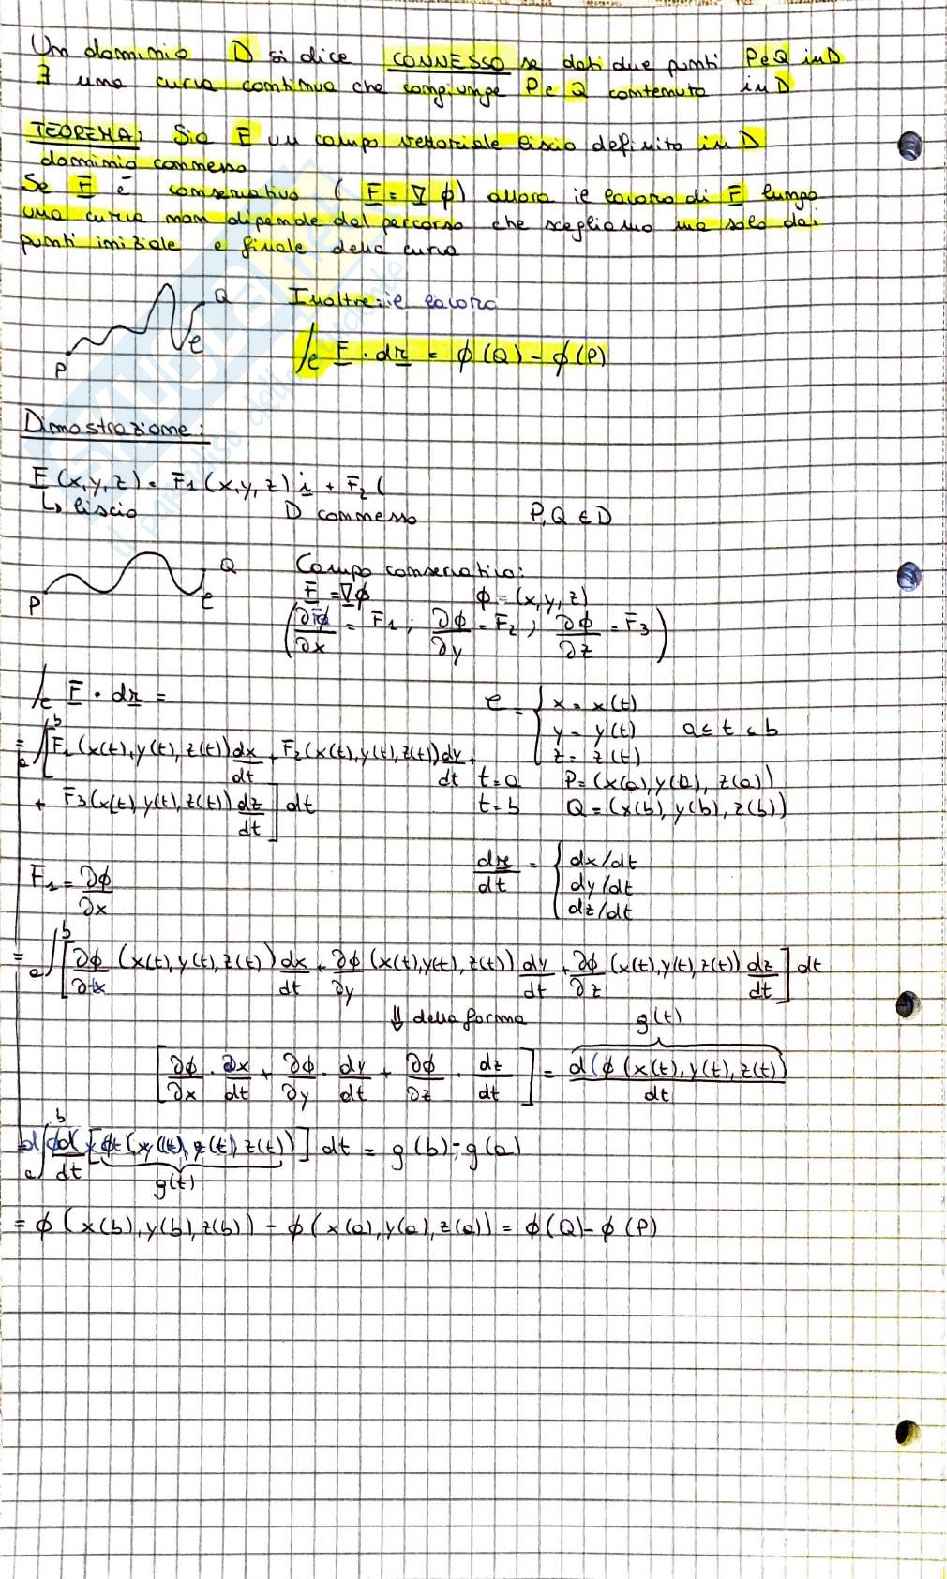 Un dominio D si dice CONNESSO se dati due punti P e Q in D
∃ una curva continua che congiunge P e Q contenuta in D
TEOREMA: Sia F un campo vettoriale liscio definito in D
dominio connesso
Se F è conservativo (F = ∇ϕ) allora il lavoro di F lungo
una curva non dipende dal percorso che scegliamo ma solo dai
punti iniziale e finale della curva
Q Inoltre: il lavoro
P e ∫e F · dr = ϕ(Q) - ϕ(P)
Dimostrazione:
F(x,y,z) = F1(x,y,z) i + F2(
↳ liscio D connesso P,Q ∈ D
P Q e Campo conservativo:
F = ∇ϕ ϕ = (x,y,z)
(∂ϕ/∂x = F1, ∂ϕ/∂y = F2, ∂ϕ/∂z = F3)
∫e F · dr = e = { x = x(t)
y = y(t) a ≤ t ≤ b
z = z(t)
= a∫b [F1(x(t),y(t),z(t)) dx/dt + F2(x(t),y(t),z(t)) dy/dt +
t=a P=(x(a),y(a),z(a))
+ F3(x(t),y(t),z(t)) dz/dt] dt t=b Q=(x(b),y(b),z(b))
F1 = ∂ϕ/∂x dr/dt = { dx/dt
dy/dt
dz/dt
= a∫b [∂ϕ/∂x (x(t),y(t),z(t)) dx/dt + ∂ϕ/∂y (x(t),y(t),z(t)) dy/dt + ∂ϕ/∂z (x(t),y(t),z(t)) dz/dt] dt
⇓ della forma g(t)
[∂ϕ/∂x · ∂x/dt + ∂ϕ/∂y · dy/dt + ∂ϕ/∂z · dz/dt] = d(ϕ(x(t),y(t),z(t))/dt
a∫b d/dt [ϕ(x(t),y(t),z(t))] dt = g(b) - g(a)
g(t)
= ϕ(x(b),y(b),z(b)) - ϕ(x(a),y(a),z(a)) = ϕ(Q) - ϕ(P)